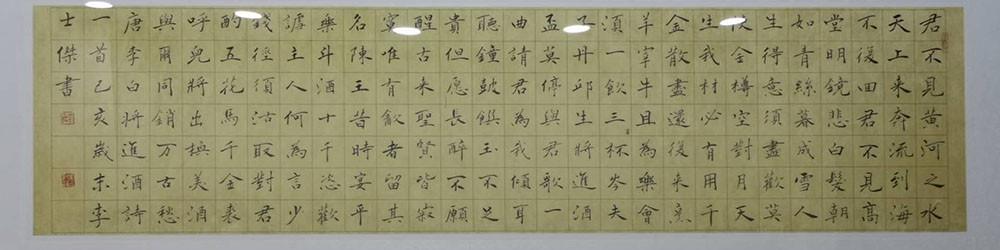 君不見黃河之水
天上來奔流到海
不復回君不見高
堂明鏡悲白髮朝
如青絲暮成雪人
生得意須盡歡莫
使金樽空對月天
生我材必有用千
金散盡還復來烹
羊宰牛且為樂會
須一飲三杯岑夫
子丹邱生將進酒
盃莫停與君歌一
曲請君為我傾耳
聽鐘鼓饌玉不足
貴但愿長醉不願
醒古來聖賢皆寂
寞唯有飲者留其
名陳王昔時宴平
樂斗酒十千恣歡
謔主人何為言少
錢徑須沽取對君
酌五花馬千金裘
呼兒將出換美酒
與爾同銷萬古愁
唐李白將進酒詩
一首己亥歲末李
士傑書